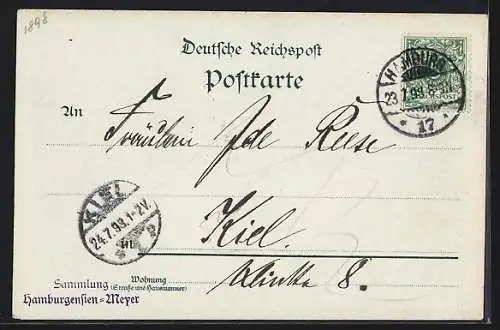 1898
Deutsche Reichspost
Postkarte
HAMBURG
23.7.98.8
* 17 *
An
Fräulein Ide Reese
Kiel.
KIEL
24.7.98.1-2V.
Klinke 8.
Wohnung
(Straße und Hausnummer)
Sammlung
Hamburgensien-Meyer